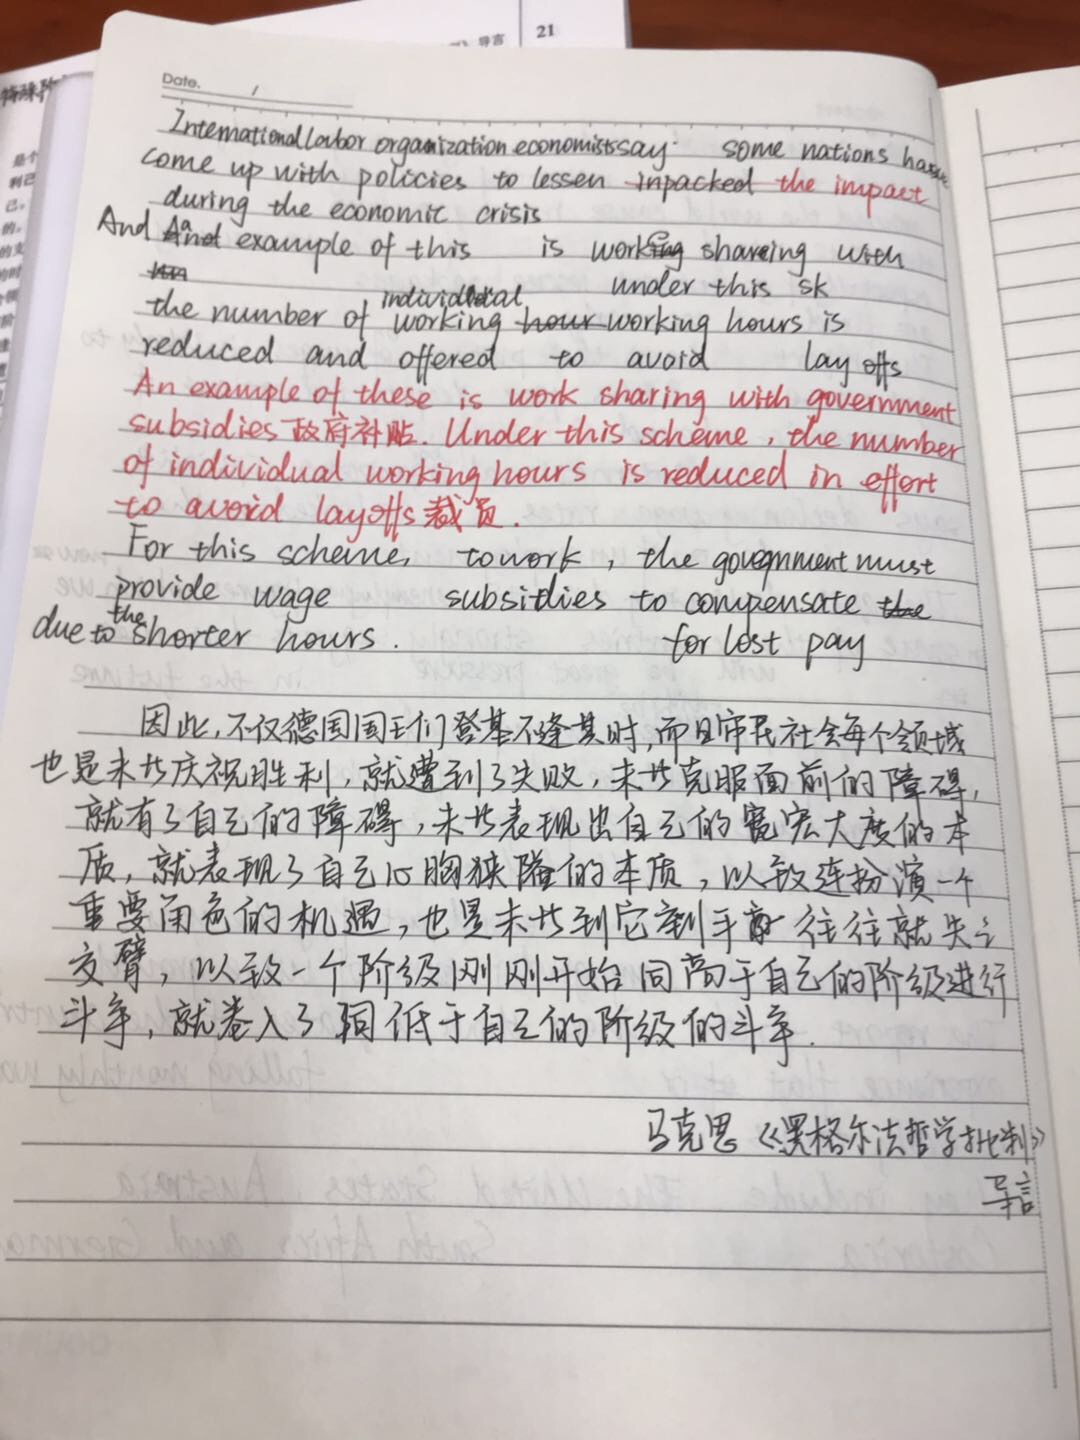 21
导言
Date. /
International labor organization economists say some nations have
come up with policies to lessen inpacked the impact
during the economic crisis
And And example of this is working sharing with
under this sk
the number of individual working hour working hours is
reduced and offered to avoid lay offs
An example of these is work sharing with government
subsidies 政府补贴. Under this scheme, the number
of individual working hours is reduced in effort
to avoid layoffs 裁员.
For this scheme, to work, the government must
provide wage subsidies to compensate the
due to the shorter hours. for lost pay
因此,不仅德国国王们登基不逢其时,而且市民社会每个领域
也是未共庆祝胜利,就遭到了失败,未共克服面前的障碍,
就有了自己的障碍,未共表现出自己的宽宏大度的本
质,就表现了自己心胸狭隘的本质,以致连扮演一个
重要角色的机遇,也是未共到它到手 往往就失之
交臂,以致一个阶级刚刚开始同高于自己的阶级进行
斗争,就卷入了同低于自己的阶级的斗争.
马克思《黑格尔法哲学批判》
导言